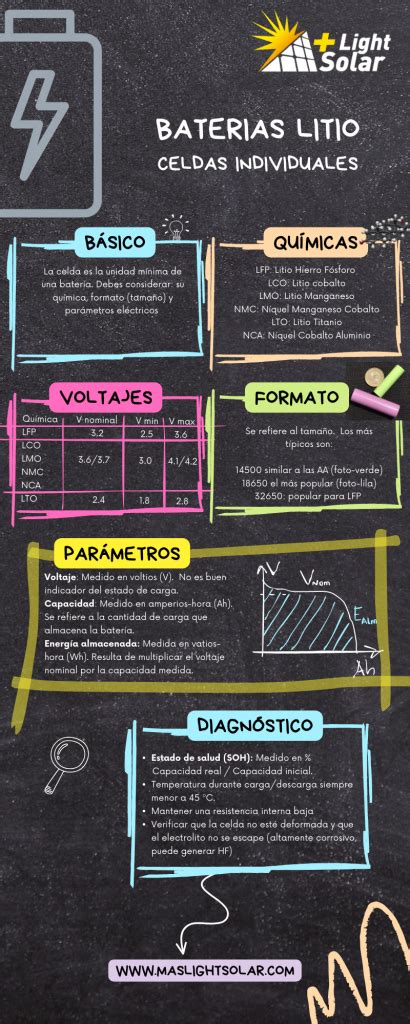 +Light
Solar
BATERIAS LITIO
CELDAS INDIVIDUALES
BÁSICO
La celda es la unidad mínima de
una batería. Debes considerar: su
química, formato (tamaño) y
parámetros eléctricos
QUÍMICAS
LFP: Litio Hierro Fósforo
LCO: Litio cobalto
LMO: Litio Manganeso
NMC: Níquel Manganeso Cobalto
LTO: Litio Titanio
NCA: Níquel Cobalto Aluminio
VOLTAJES
Química V nominal V min V max
LFP 3.2 2.5 3.6
LCO
LMO 3.6/3.7 3.0 4.1/4.2
NMC
NCA
LTO 2.4 1.8 2.8
FORMATO
Se refiere al tamaño. Los más
típicos son:
14500 similar a las AA (foto-verde)
18650 el más popular (foto-lila)
32650: popular para LFP
PARÁMETROS
Voltaje: Medido en voltios (V). No es buen
indicador del estado de carga.
Capacidad: Medido en amperios-hora (Ah).
Se refiere a la cantidad de carga que
almacena la batería.
Energía almacenada: Medida en vatios-
hora (Wh). Resulta de multiplicar el voltaje
nominal por la capacidad medida.
V
VNom
EAlm
Ah
DIAGNÓSTICO
• Estado de salud (SOH): Medido en %
Capacidad real / Capacidad inicial.
• Temperatura durante carga/descarga siempre
menor a 45 °C.
• Mantener una resistencia interna baja
• Verificar que la celda no esté deformada y que
el electrolito no se escape (altamente corrosivo,
puede generar HF)
WWW.MASLIGHTSOLAR.COM